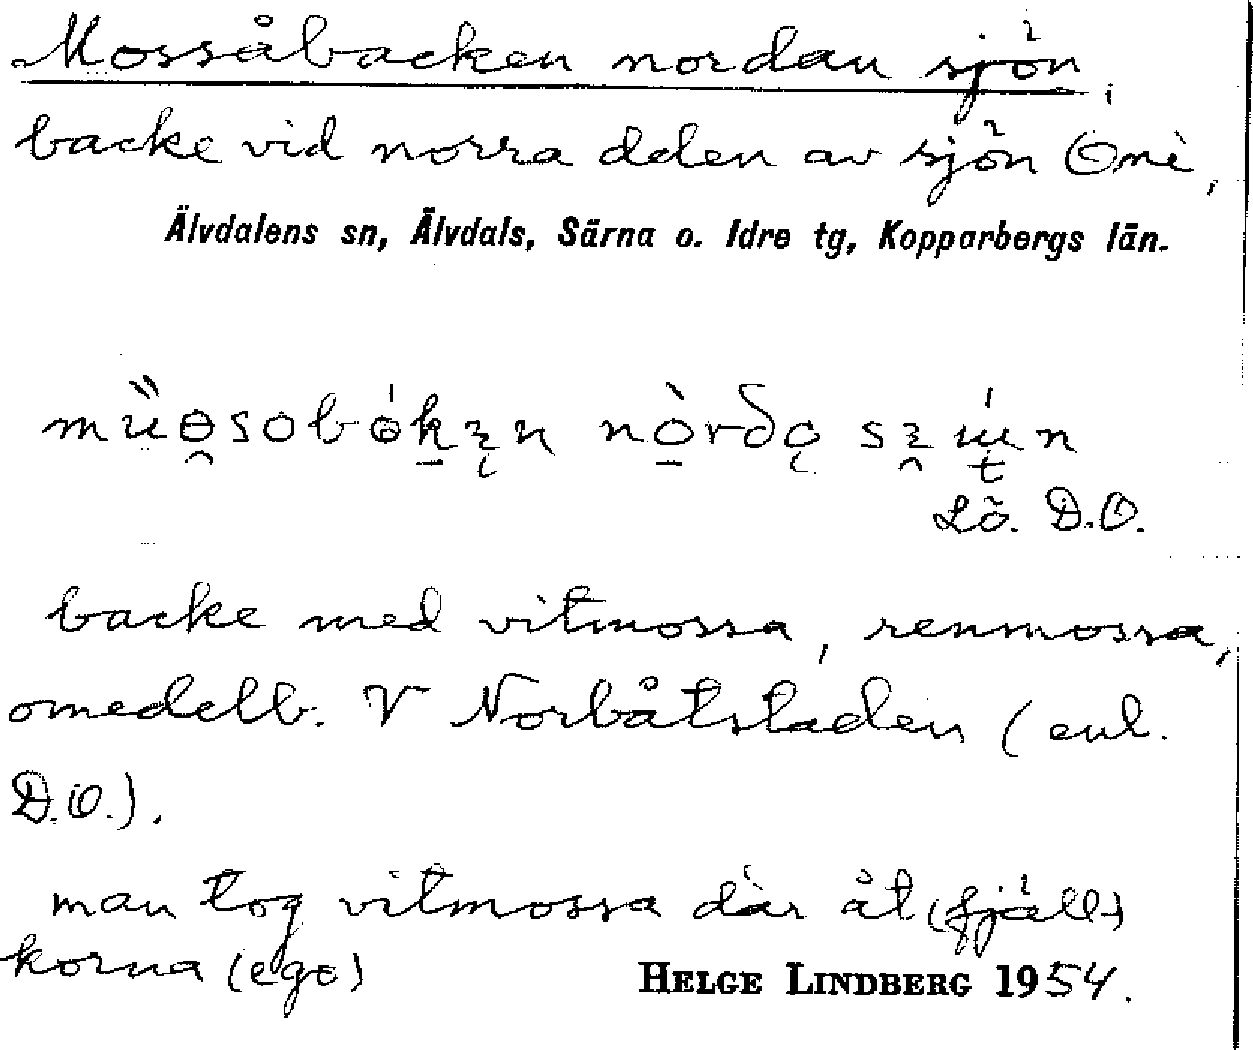 Mossåbacken nordan sjön,
backe vid norra delen av sjön Omè,
Älvdalens sn, Älvdals, Särna o. Idre tg, Kopparbergs län.
Lö. D.O.
backe med vitmossa, renmossa,
omedelb. V Norbåtstaden (enl.
D.O.).
man tog vitmossa där åt (fjäll-)
korna (ego)
HELGE LINDBERG 1954.